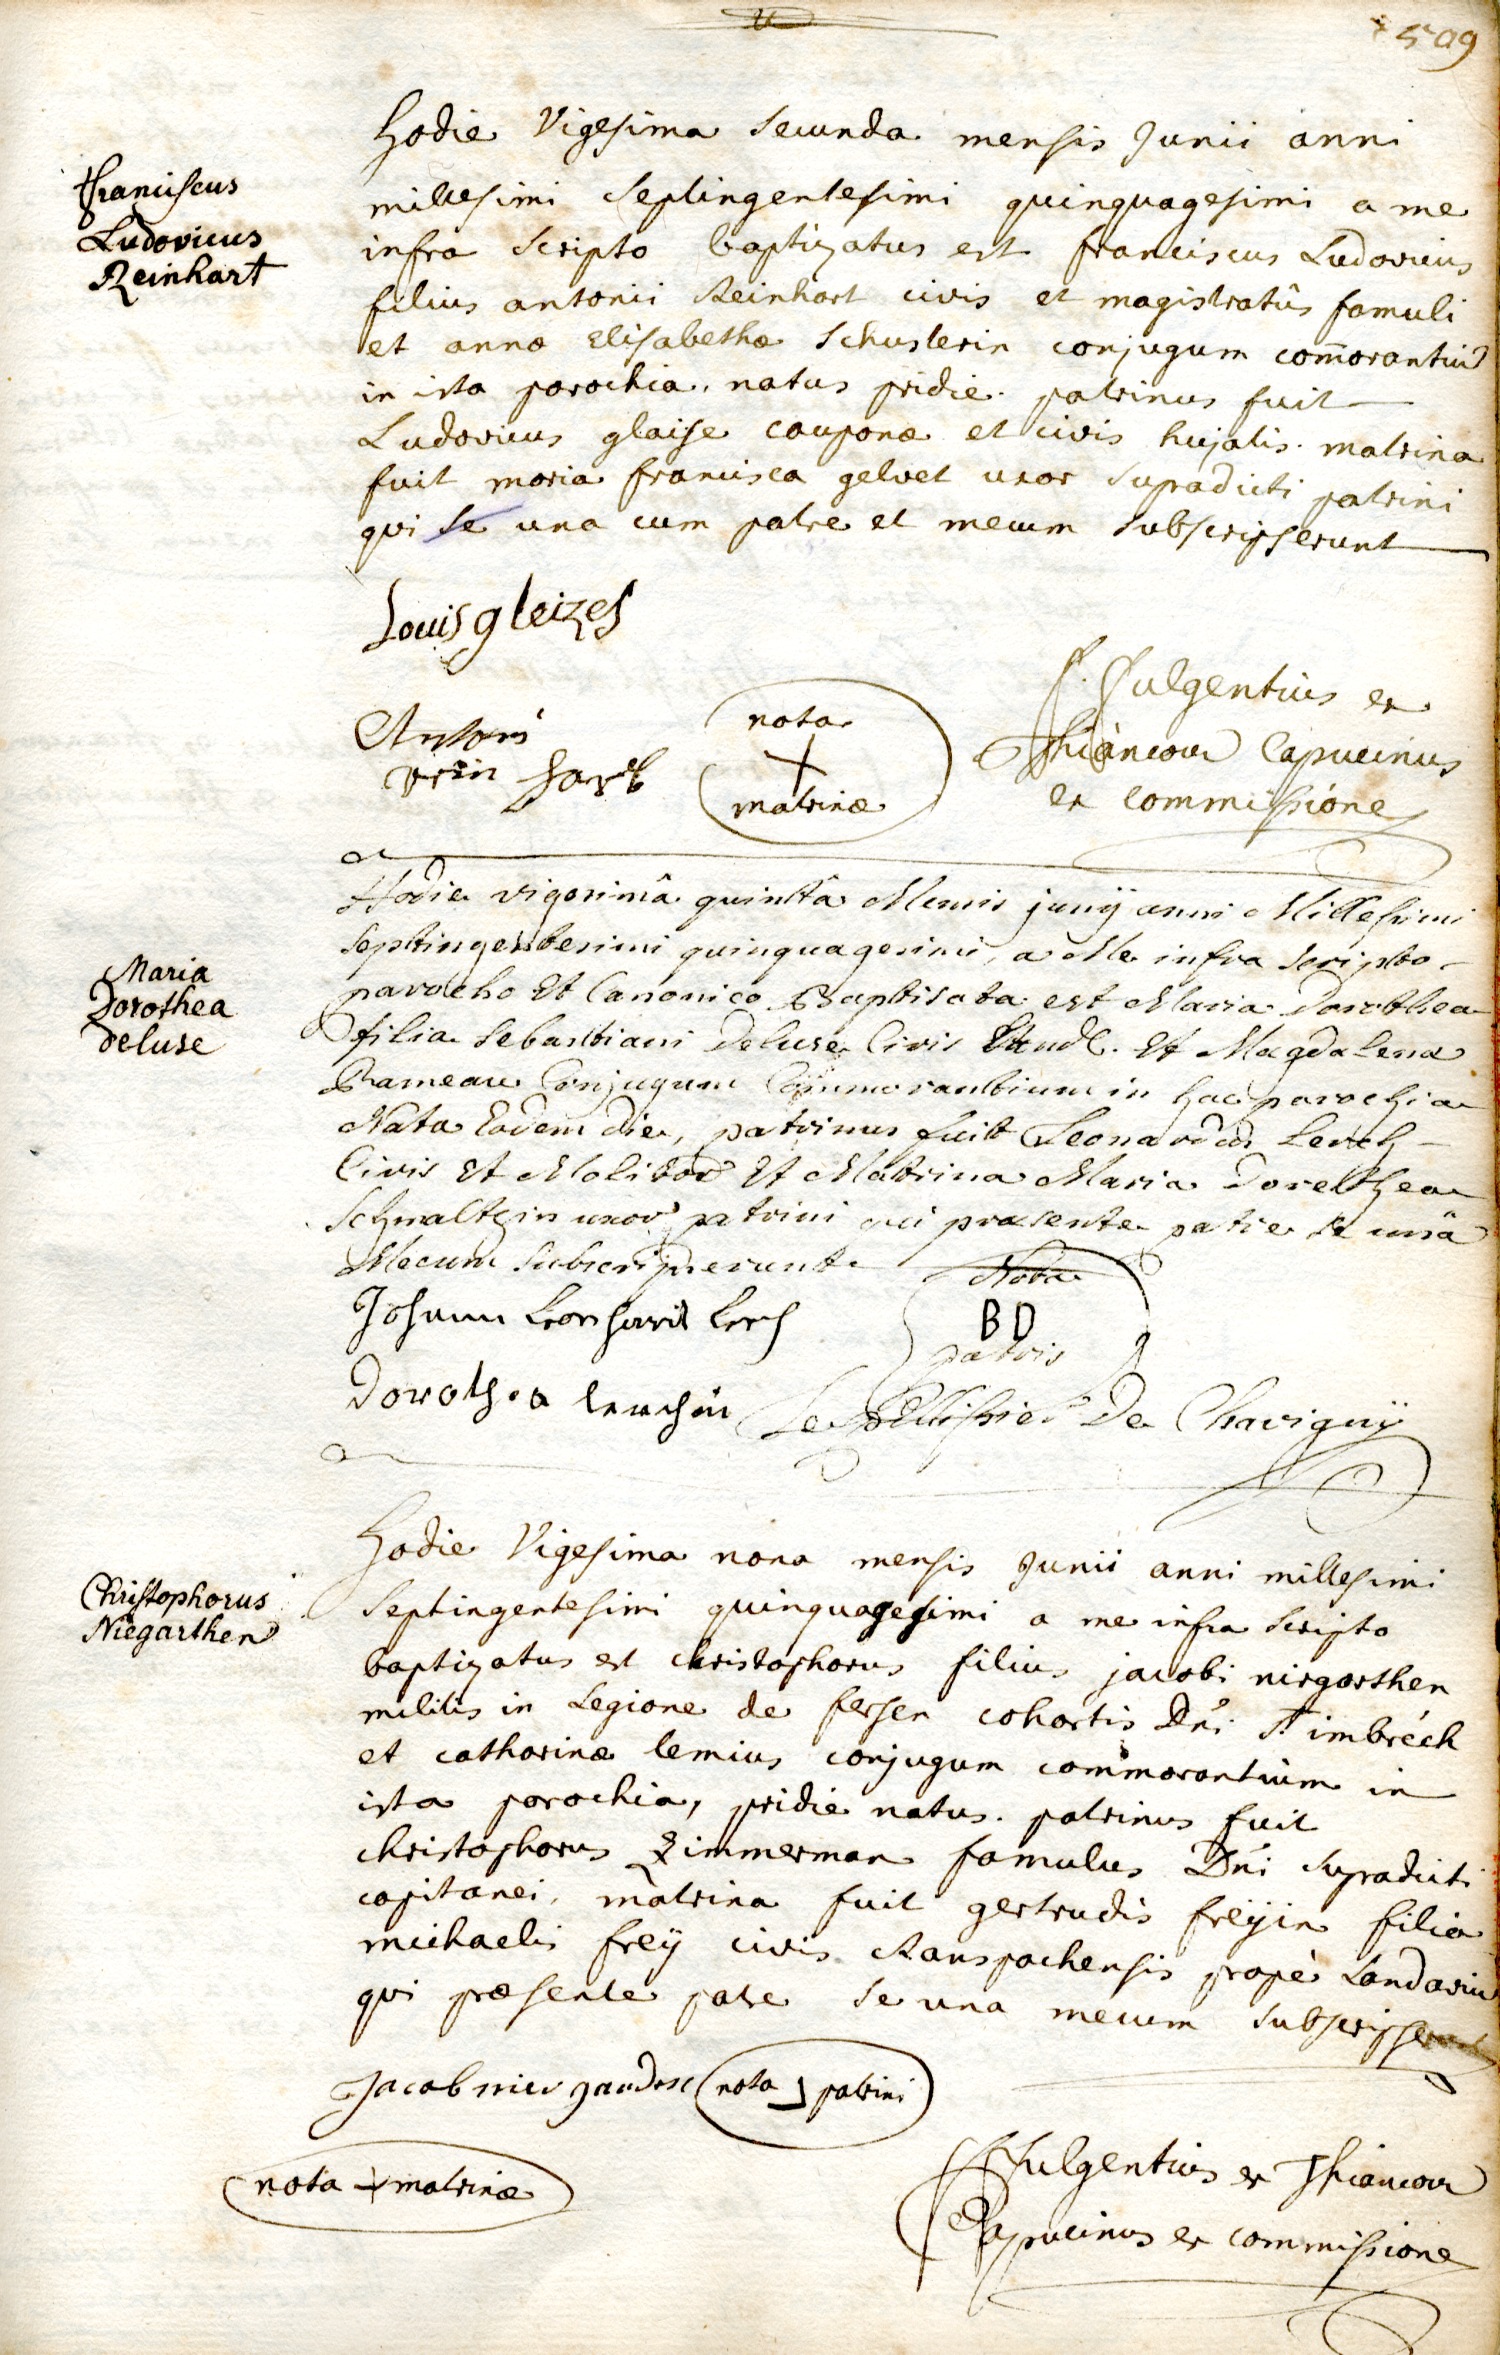 599
Franciscus
Ludovicus
Reinhart
Hodie Vigesima secunda mensis Junii anni
millesimi septingentesimi quinquagesimi a me
infra scripto baptizatus est franciscus Ludovicus
filius antonii Reinhart civis et magistratûs famuli
et annæ Elisabethæ Schusterin conjugum com̄orantiũ
in ista parochia, natus pridie. patrinus fuit
Ludovicus glaise caupona et civis hujatis. matrina
fuit maria francisca gelvet uxor supradicti patrini
qui se una cum patre et mecum subscripserunt
Louis gleizes
Antoni
rein hart
nota
+
matrinæ
f. fulgentius ex
Thiancour Capucinus
ex commissione
Maria
Dorothea
Deluse
Hodie vigesimâ quintâ Mensis junij anni Millesimi
septingentesimi quinquagesimi, a Me infra scripto
parocho Et Canonico Baptisata est Maria Dorothea
filia Sebastiani Deluse Civis Et Magdalena
Rameau Conjugum Commorantium in hac parochia
Nata Eodem die, patrinus fuit Leonardus Lerch
Civis Et Molitor Et Matrina Maria Dorethea
Schmaltzin uxor patrini qui præsente patre se unâ
Mecum subscripserunt
Nota
BD
patris
Johann Leonhard Lerch
Dorothea lerchin
Le Pellissier De Chavignÿ
Christophorus
Niegarthen
Hodie Vigesima nona mensis Junii anni millesimi
septingentesimi quinquagesimi a me infra scripto
baptizatus est christophorus filius jacobi niegarthen
militis in Legione de fersen cohortis Dñi imbréch
et catharinæ lemius conjugum commorantium in
ista parochia, pridie natus. patrinus fuit
christophorus Zimmerman famulus Dñi supradicti
capitanei, matrina fuit gertrudis freÿin filia
michaelis freÿ civis Ranspachensis propè Landaviũ
qui præsente patre se una mecum subscripserunt
Jacob nota patrini
nota + matrinæ
f. fulgentius ex Thiancour
Capucinus ex commissione